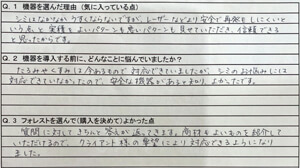 Q.1 機器を選んだ理由(気に入っている点)
シミはなかなかうすくならないですが、レーザーなどより安全で再発もしにくいと
いう点と実績もよいパターンも悪いパターンも見せていただき、信頼できる
と思ったからです。
Q.2 機器を導入する前に、どんなことに悩んでいましたか?
たるみやくすみは今あるもので対応できていましたが、シミのお悩みには
対応できていなかったので、安全な機器があると知り、よかったです。
Q.3 フォレストを選んで(購入を決めて)よかった点
質問に対してきちんと答えが返ってきます。商材もよいものを紹介して
いただけるので、クライアント様の要望により対応できるようになり
ました。